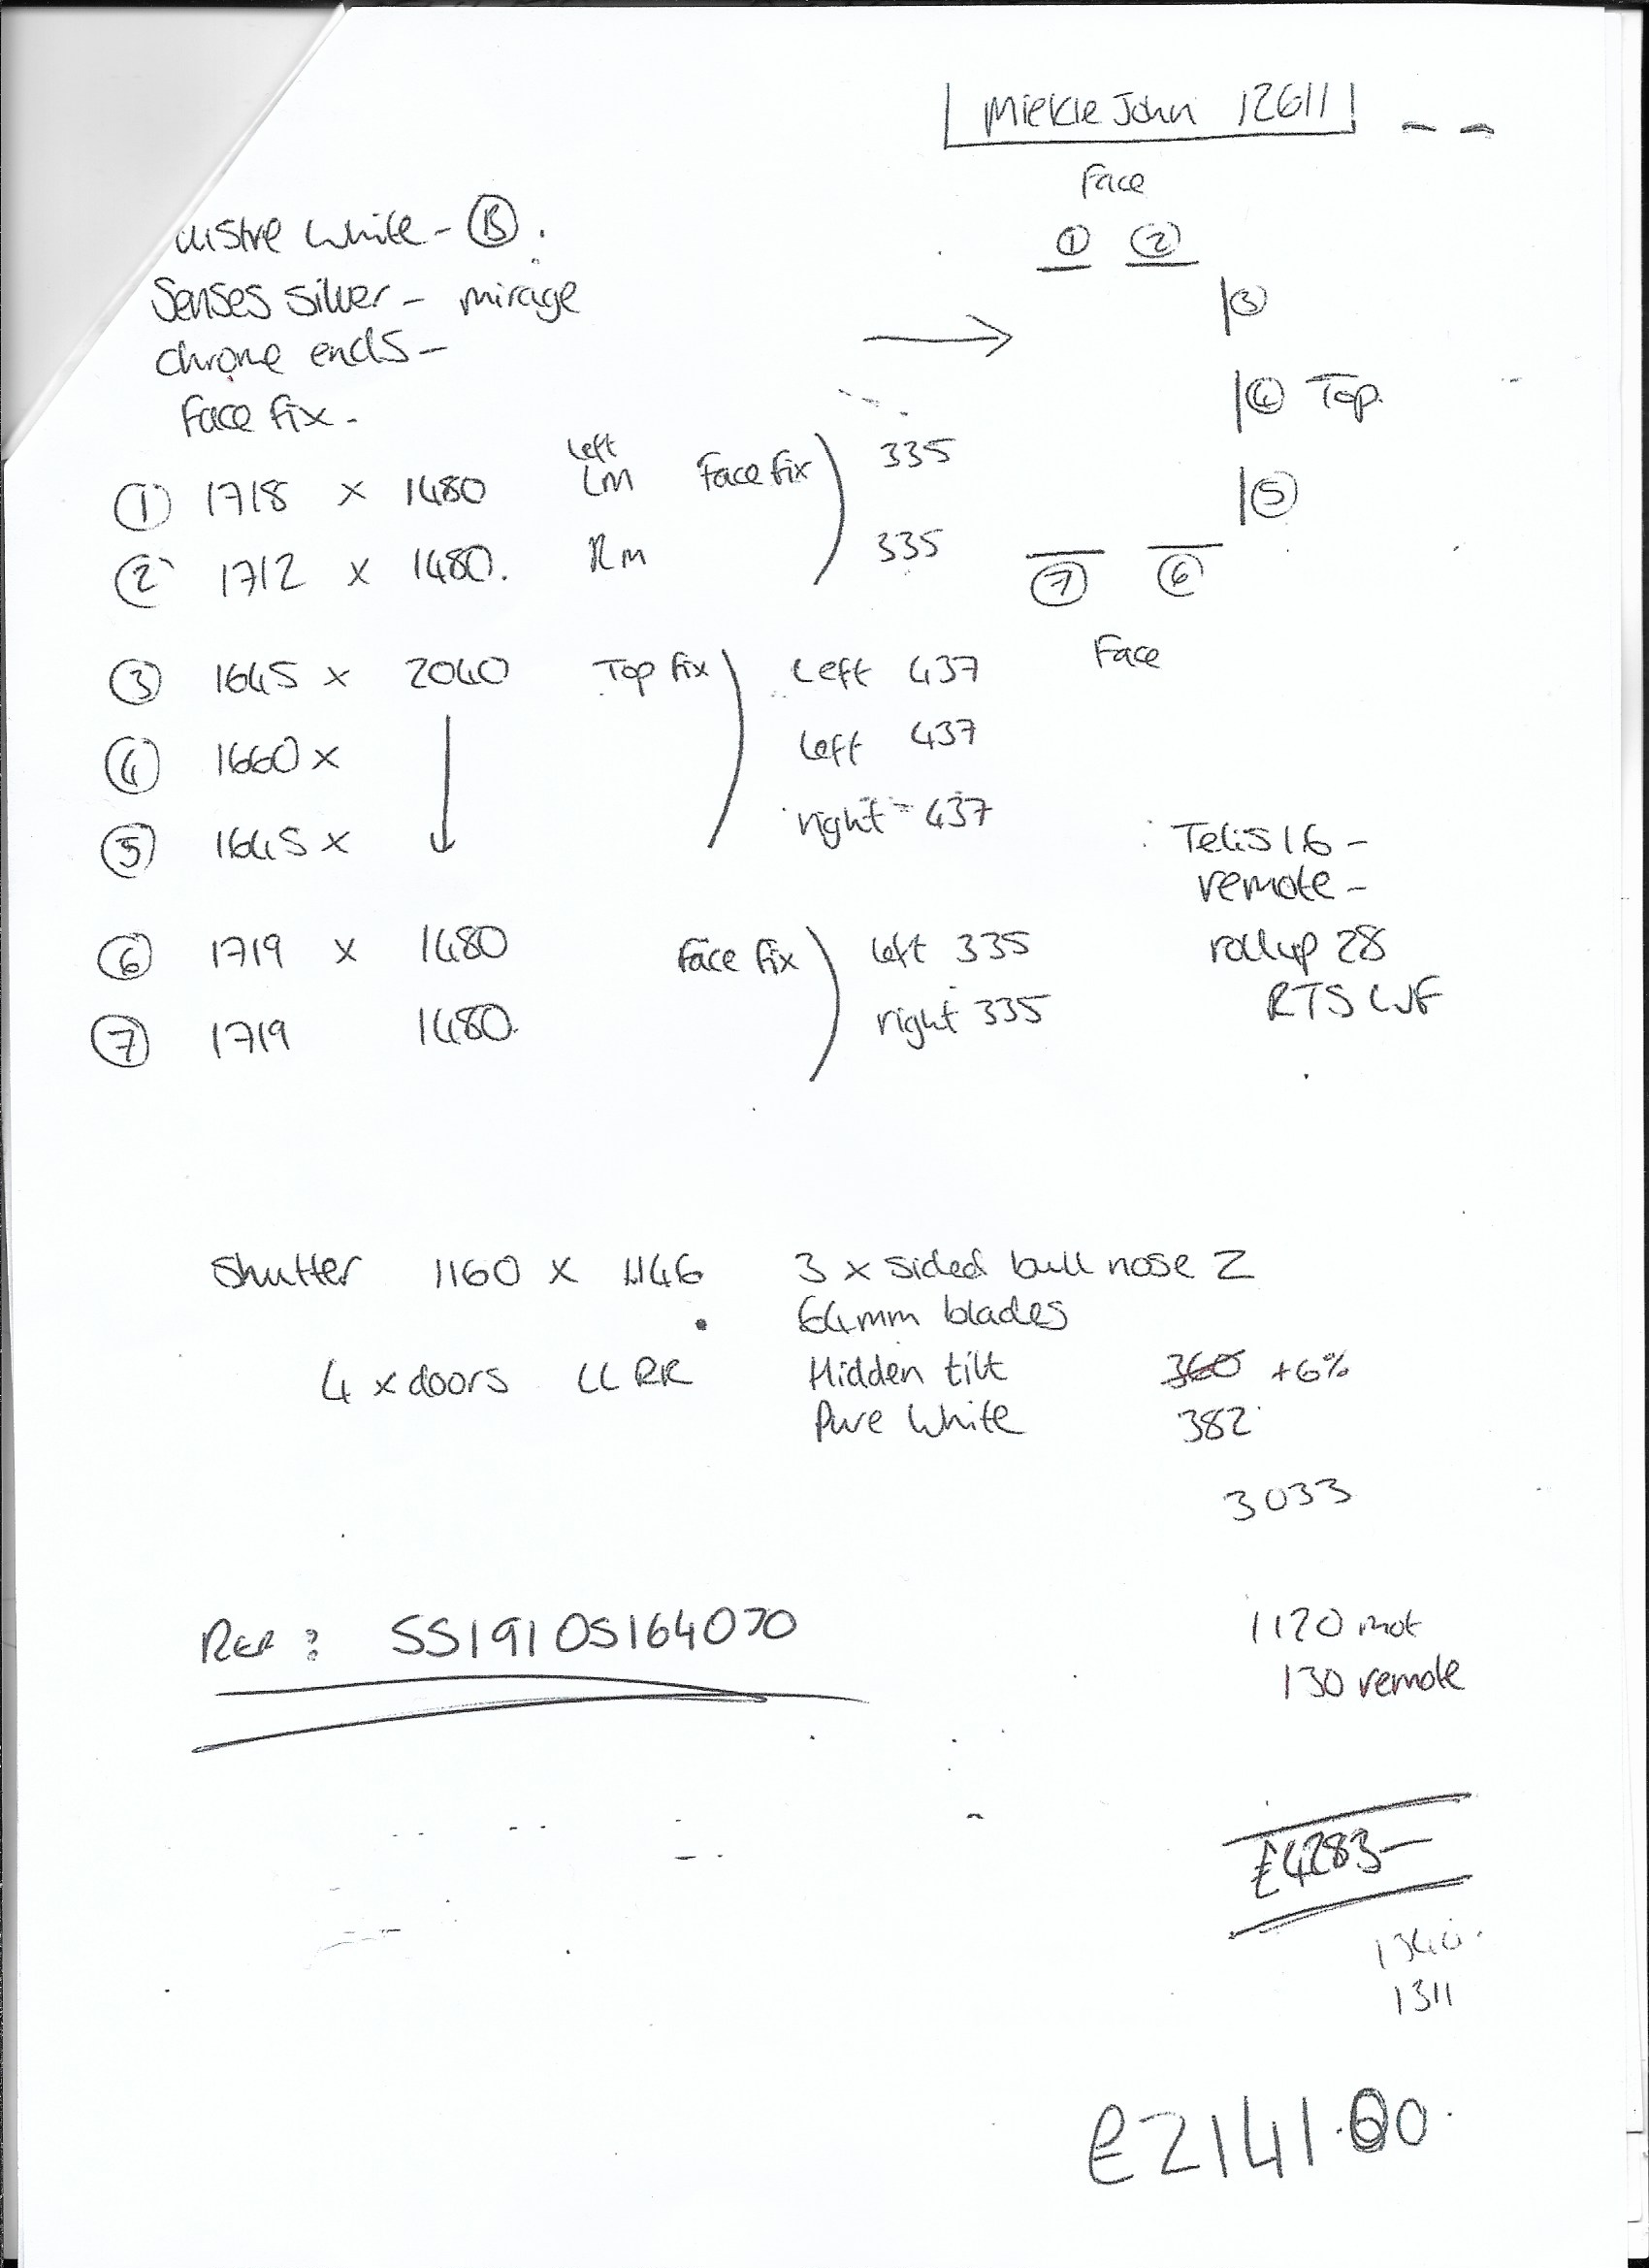 Miekle John 12611
Face
① ②
③
④ Top.
⑤
⑦ ⑥
Face
White - Ⓑ.
Senses silver - mirage
chrome ends -
Face fix -
① 1718 x 1480 left LM Face fix 335
② 1712 x 1480. RM 335
③ 1645 x 2040 Top fix Left 437
④ 1660 x left 437
⑤ 1645 x right 437
Telis 16 -
remote -
rollup 28
RTS LWF
⑥ 1719 x 1480 Face fix left 335
⑦ 1719 1480. right 335
Shutter 1160 x 1146 3 x sided bull nose Z
64mm blades
4 x doors LLRR Hidden tilt 360 +6%
Pure White 382
3033
REF: SS19105164070
1120 mot
130 remote
£4283-
1311
£2141.60.